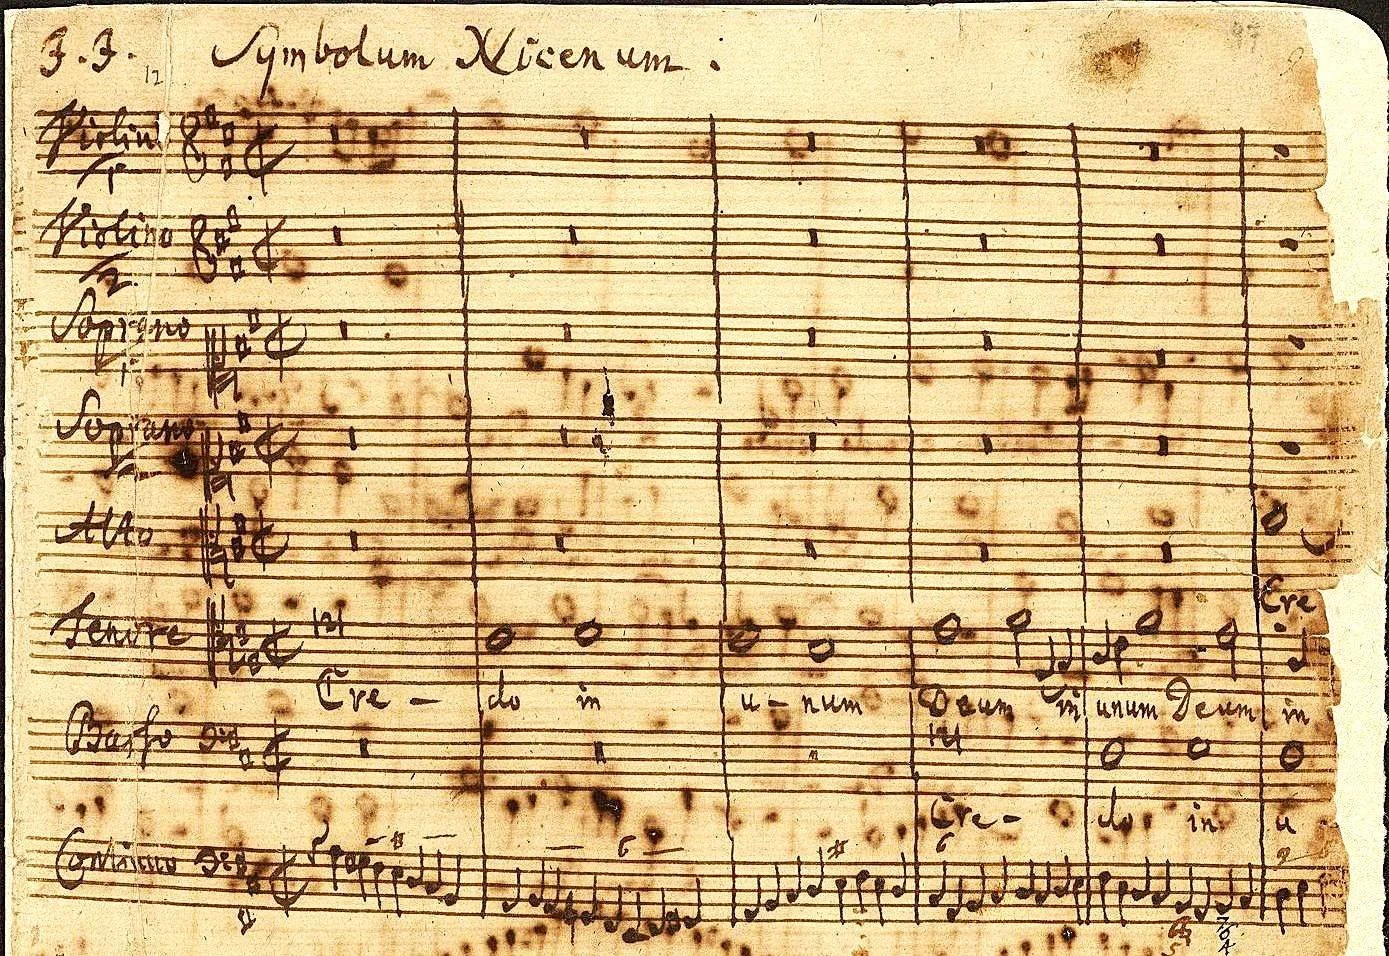 J. J. Symbolum Nicenum :
12
Violino 1
Violino 2.
Soprano 1
Soprano
Alto
Cre
Tenore
Cre - do in u - num Deum in unum Deum in
Basso
Cre - do in u
Continuo
6 6